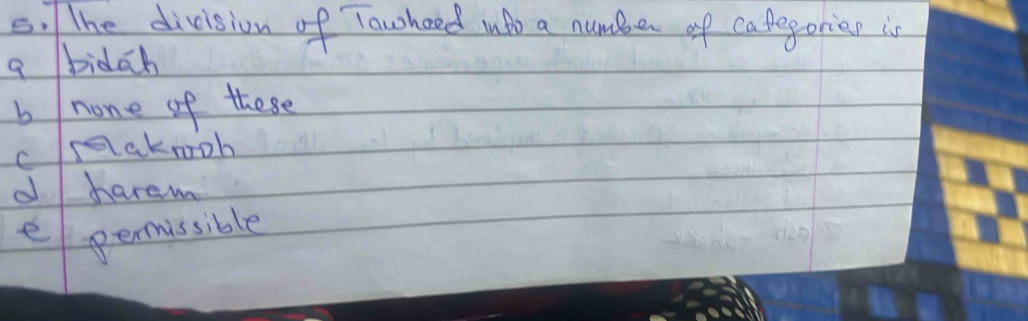 5. The division of Tawheed into a number of categories is
a bidáh
b none of these
c makrooh
d harem
e permissible